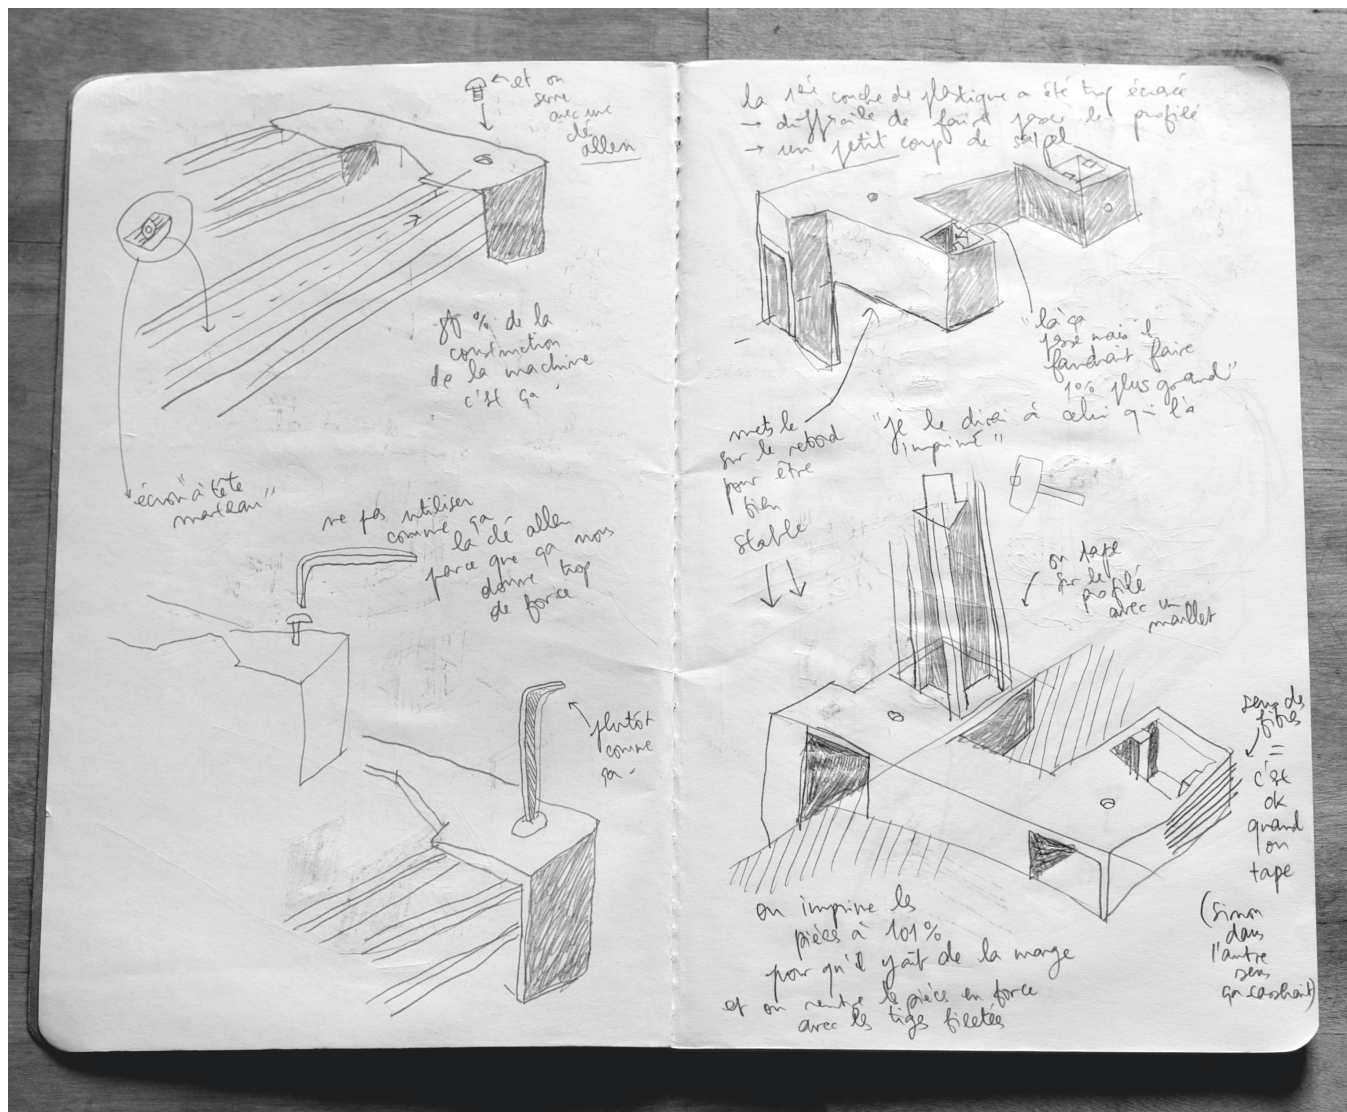 et on
serre
avec une
clé
allen
80 % de la
construction
de la machine
c'est ça
écrou "à tête
marteau"
ne pas utiliser
comme ça
la clé allen
parce que ça nous
donne trop
de force
plutôt
comme
ça
la 1ère couche de plastique a été trop écrasé
→ difficile de faire passer le profilé
→ un petit coup de scalpel
"là ça
passe mais il
faudrait faire
1% plus grand"
"je le dirai à celui qui l'a
imprimé"
mets le
sur le rebord
pour être
bien
stable
on tape
sur le
profilé
avec un
maillet
sens des
fibres
=
c'est
ok
quand
on
tape
(sinon
dans
l'autre
sens
ça casserait)
on imprime les
pièces à 101%
pour qu'il y ait de la marge
et on rentre les pièces en force
avec les tiges filetées